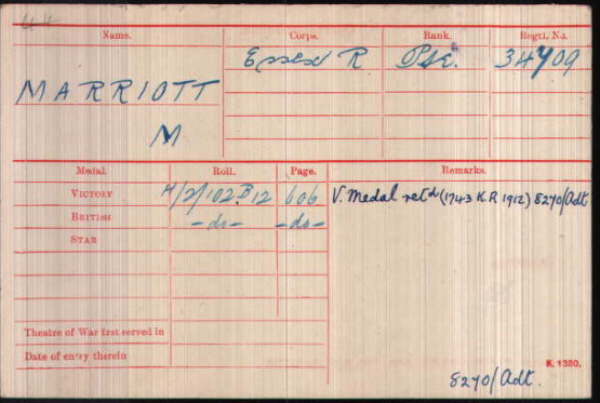 Name. Corps. Rank. Regtl. No.
MARRIOTT Essex R Pte. 34709
M
Medal. Roll. Page. Remarks.
VICTORY H/2/102.B12 606 V. Medal retd (1743 K.R 1912) 8270/Adt
BRITISH -do- -do-
STAR
Theatre of War first served in
Date of entry therein
K. 1380.
8270/Adt.